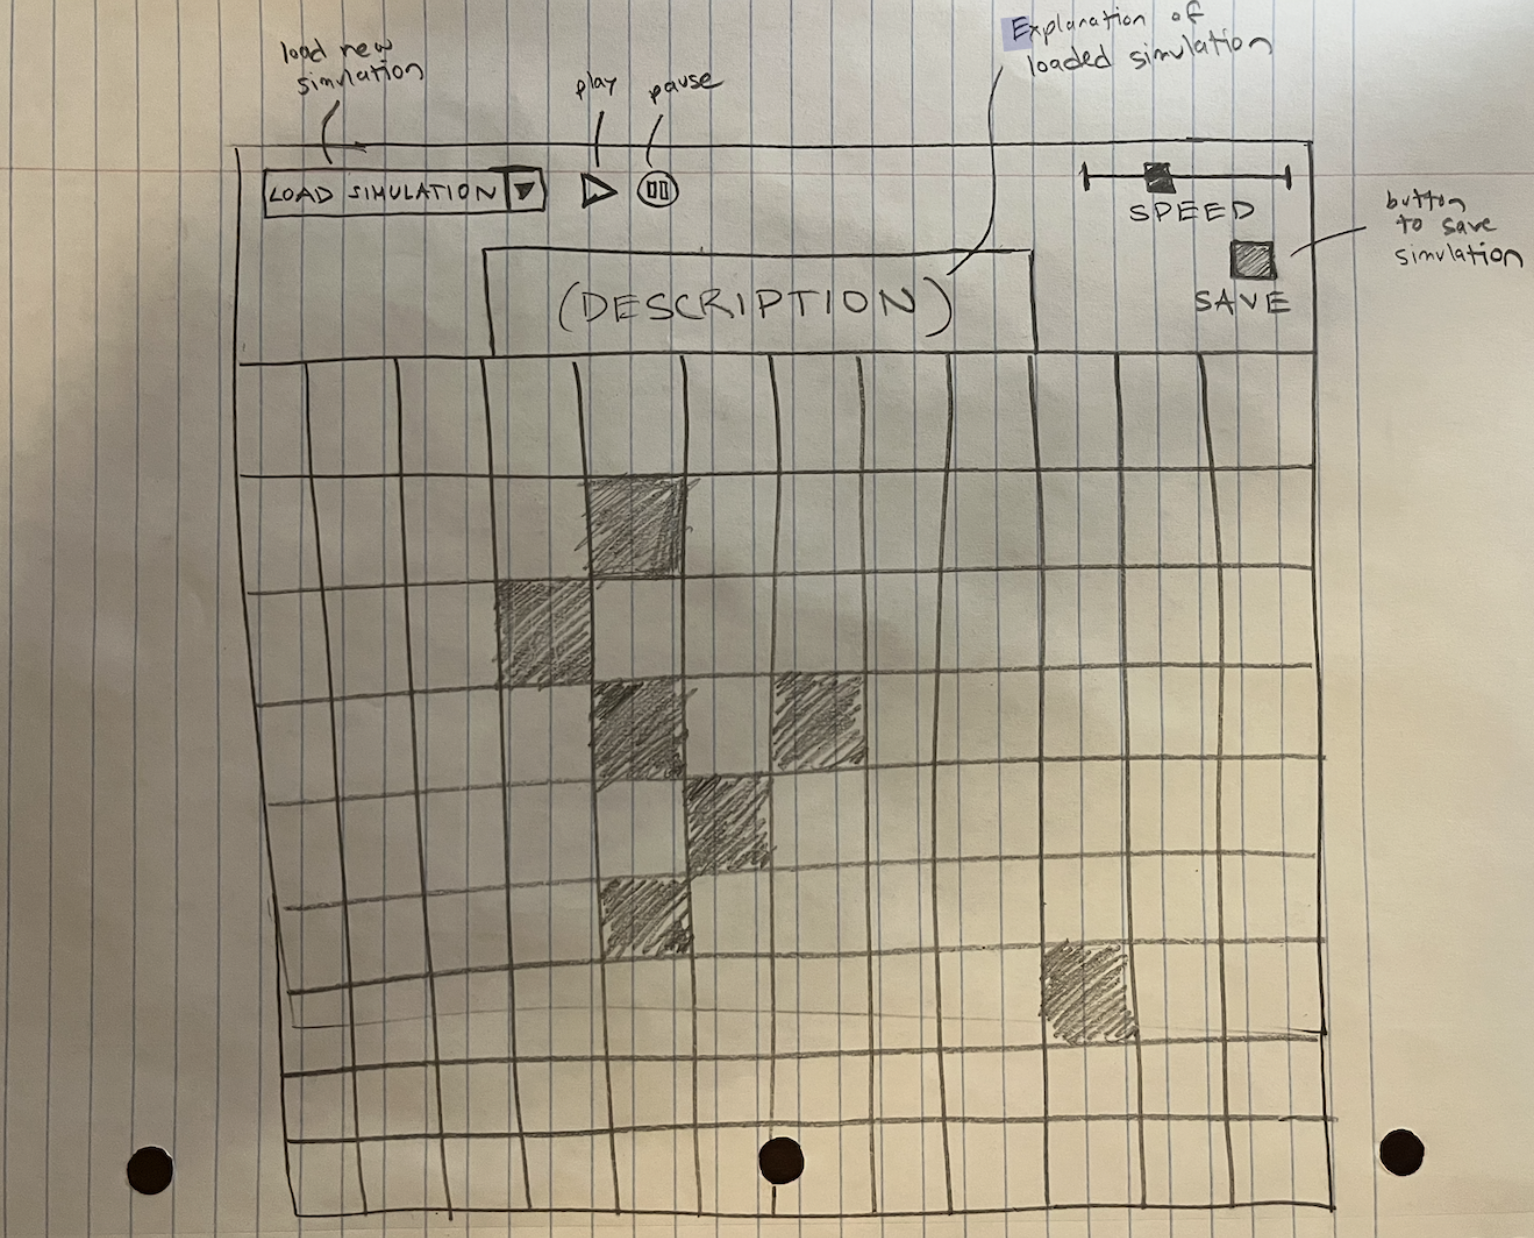 load new
simulation
play
pause
Explanation of
loaded simulation
LOAD SIMULATION
SPEED
button
to save
simulation
SAVE
(DESCRIPTION)